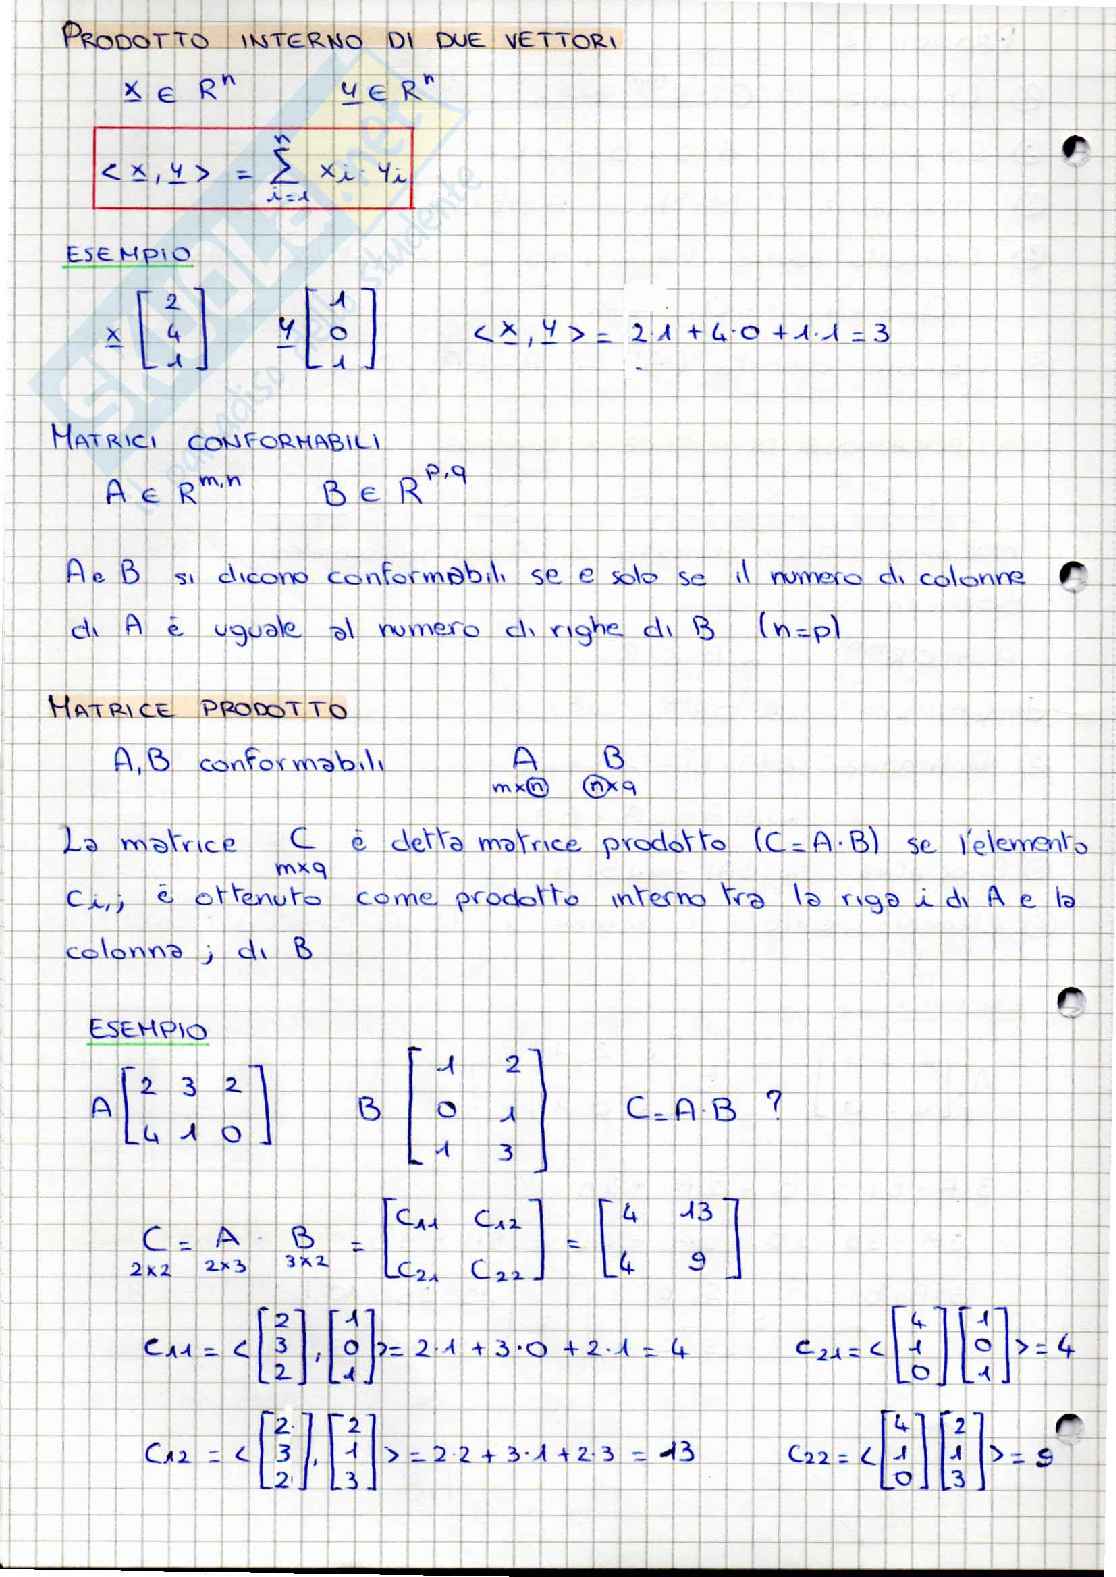 PRODOTTO INTERNO DI DUE VETTORI
x ∈ Rⁿ y ∈ Rⁿ
<x, y> = Σ_{i=1}^{n} xi · yi
ESEMPIO
x [2 4 1] y [1 0 1] <x, y> = 2·1 + 4·0 + 1·1 = 3
MATRICI CONFORMABILI
A ∈ R^{m,n} B ∈ R^{p,q}
A e B si dicono conformabili se e solo se il numero di colonne
di A è uguale al numero di righe di B (n=p)
MATRICE PRODOTTO
A, B conformabili A B
m×n n×q
La matrice C è detta matrice prodotto (C=A·B) se l'elemento
m×q
Ci,j è ottenuto come prodotto interno tra la riga i di A e la
colonna j di B
ESEMPIO
A [2 3 2; 4 1 0] B [1 2; 0 1; 1 3] C=A·B ?
C = A · B = [C11 C12; C21 C22] = [4 13; 4 9]
2×2 2×3 3×2
C11 = <[2 3 2], [1 0 1]> = 2·1 + 3·0 + 2·1 = 4 C21 = <[4 1 0] [1 0 1]> = 4
C12 = <[2 3 2], [2 1 3]> = 2·2 + 3·1 + 2·3 = 13 C22 = <[4 1 0] [2 1 3]> = 9
skuola.net
il paradiso dello studente